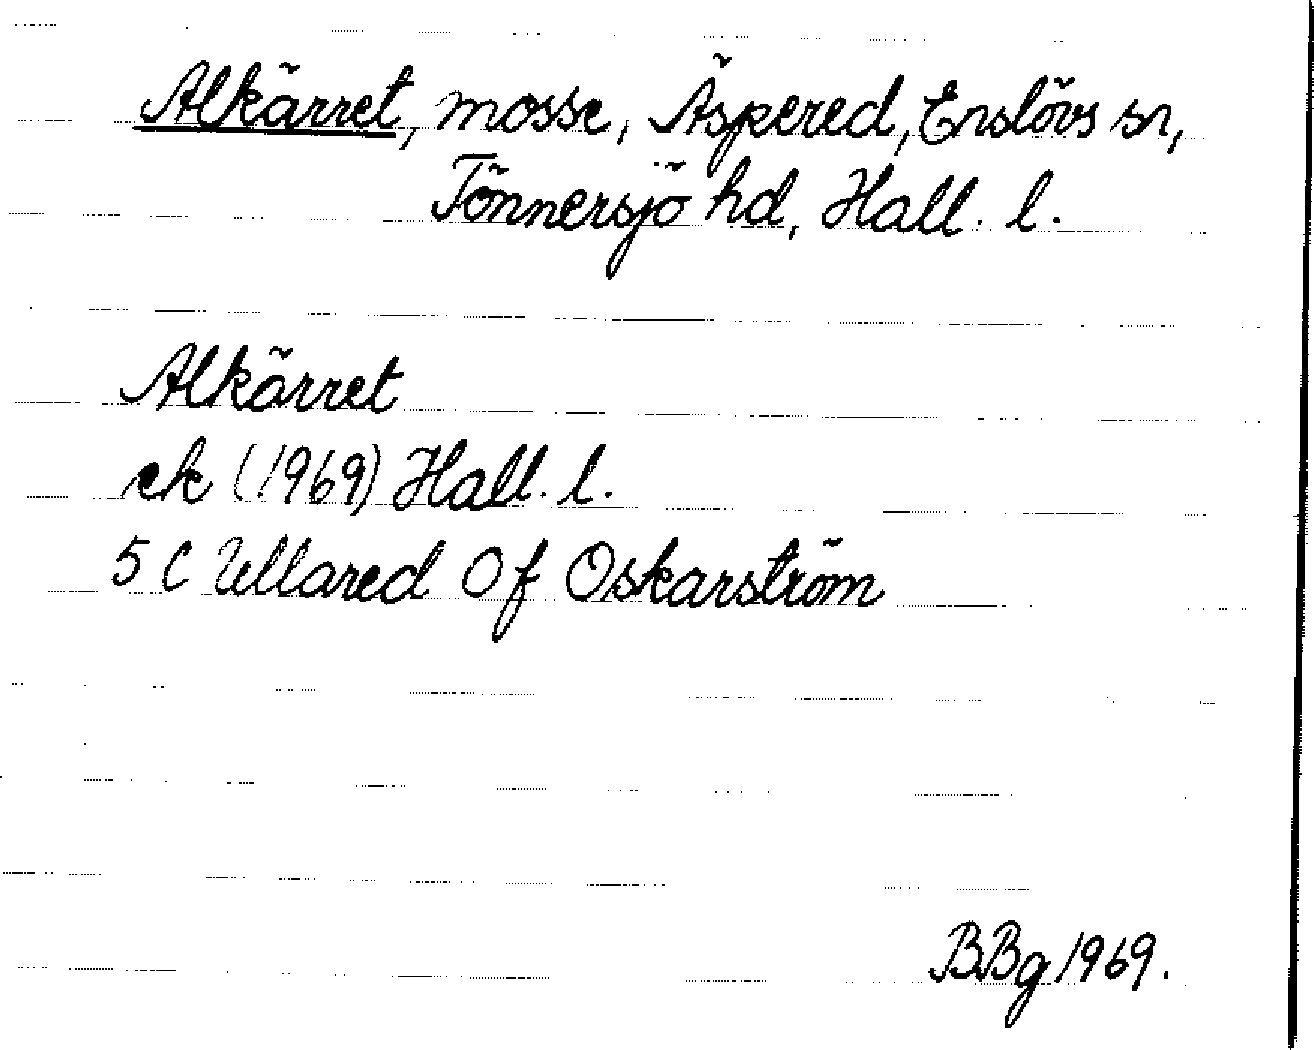 Alkärret, mosse, Äspered, Enslövs sn,
Tönnersjö hd, Hall. l.
Alkärret
ek (1969) Hall. l.
5 C Ullared 0 f Oskarström
BBg 1969.